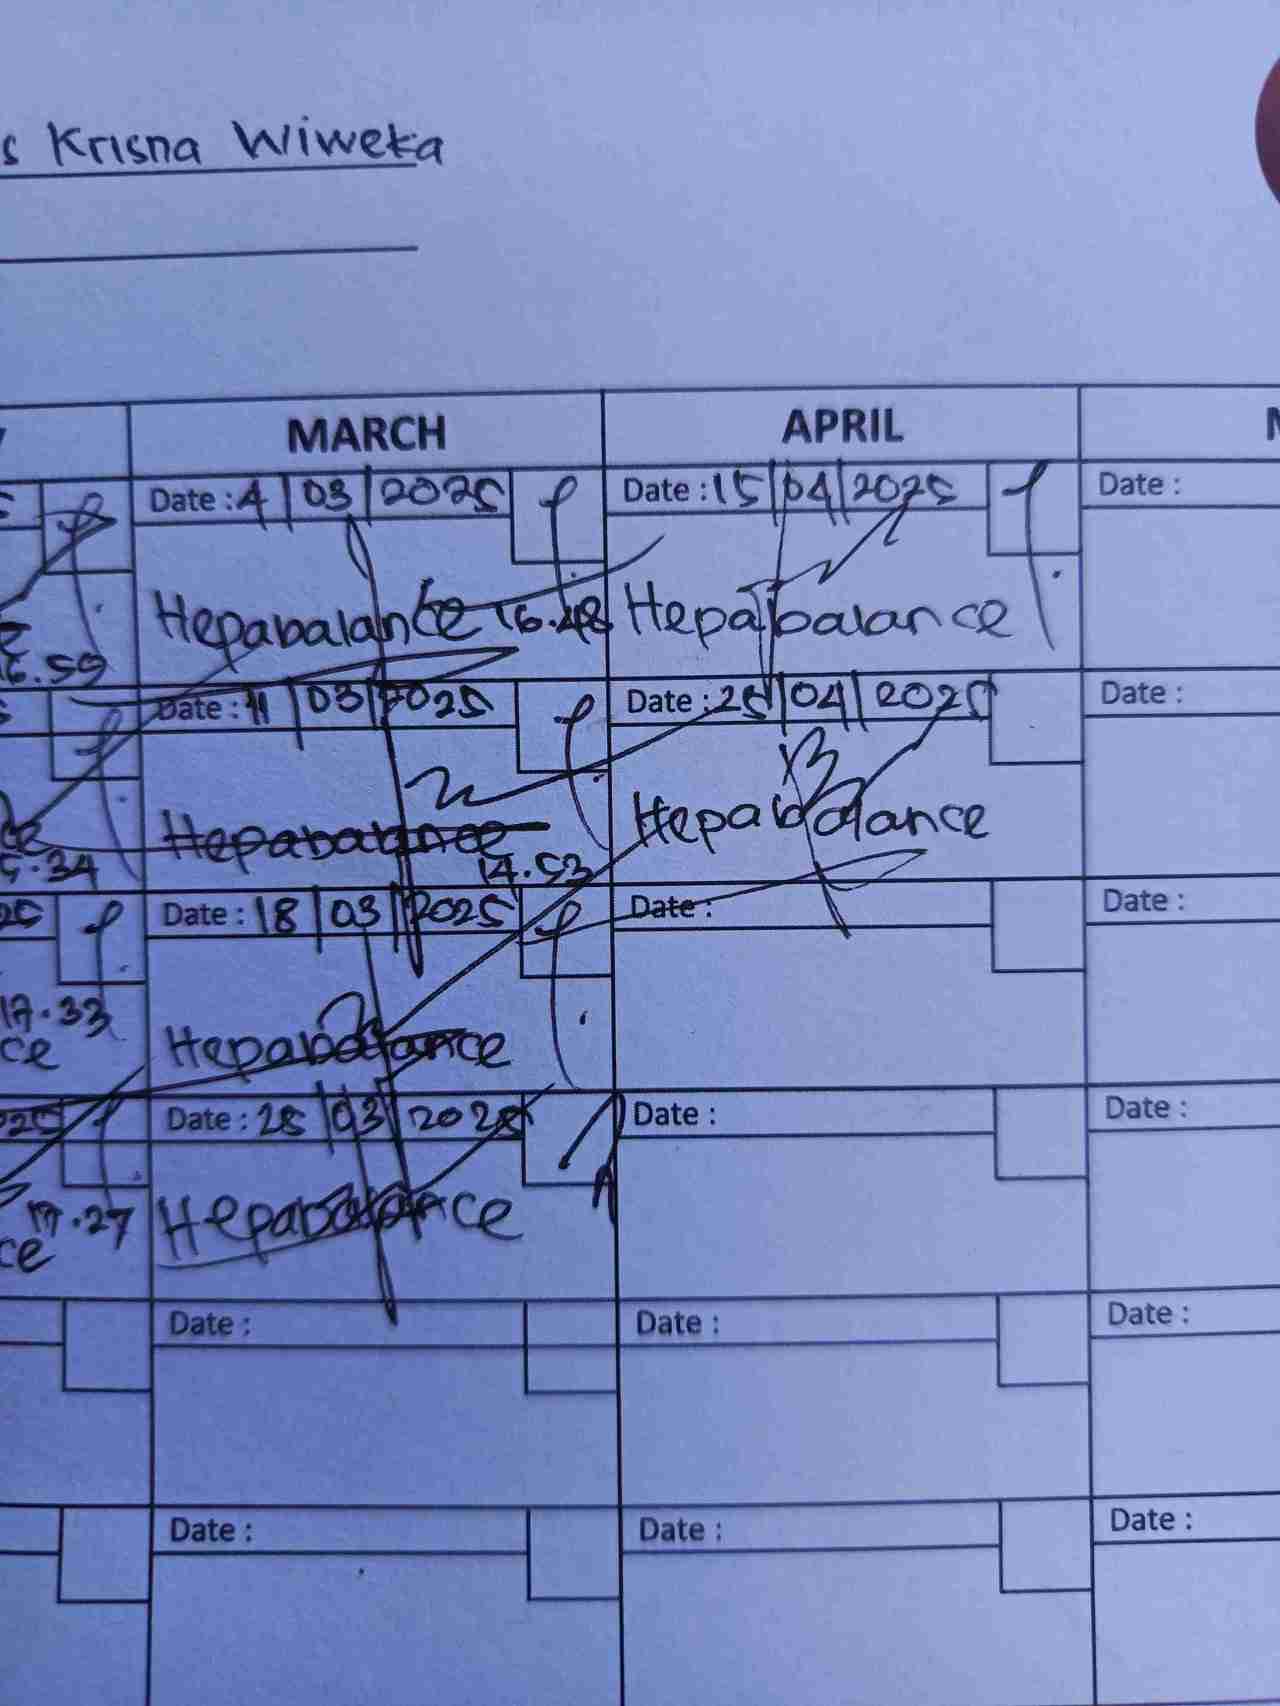 s Krisna Wiweka
MARCH APRIL
Date : 4 / 03 / 2025 Date : 15 / 04 / 2025 Date :
Hepabalance 16.48 Hepabalance
.59
Date : 11 / 03 / 2025 Date : 25 / 04 / 2025 Date :
Hepabalance Hepabalance
.34 14.53
25 Date : 18 / 03 / 2025 Date : Date :
17.33
ce Hepabalance
025 Date : 25 / 03 / 2025 Date : Date :
17.27 Hepabalance
ce
Date : Date : Date :
Date : Date : Date :